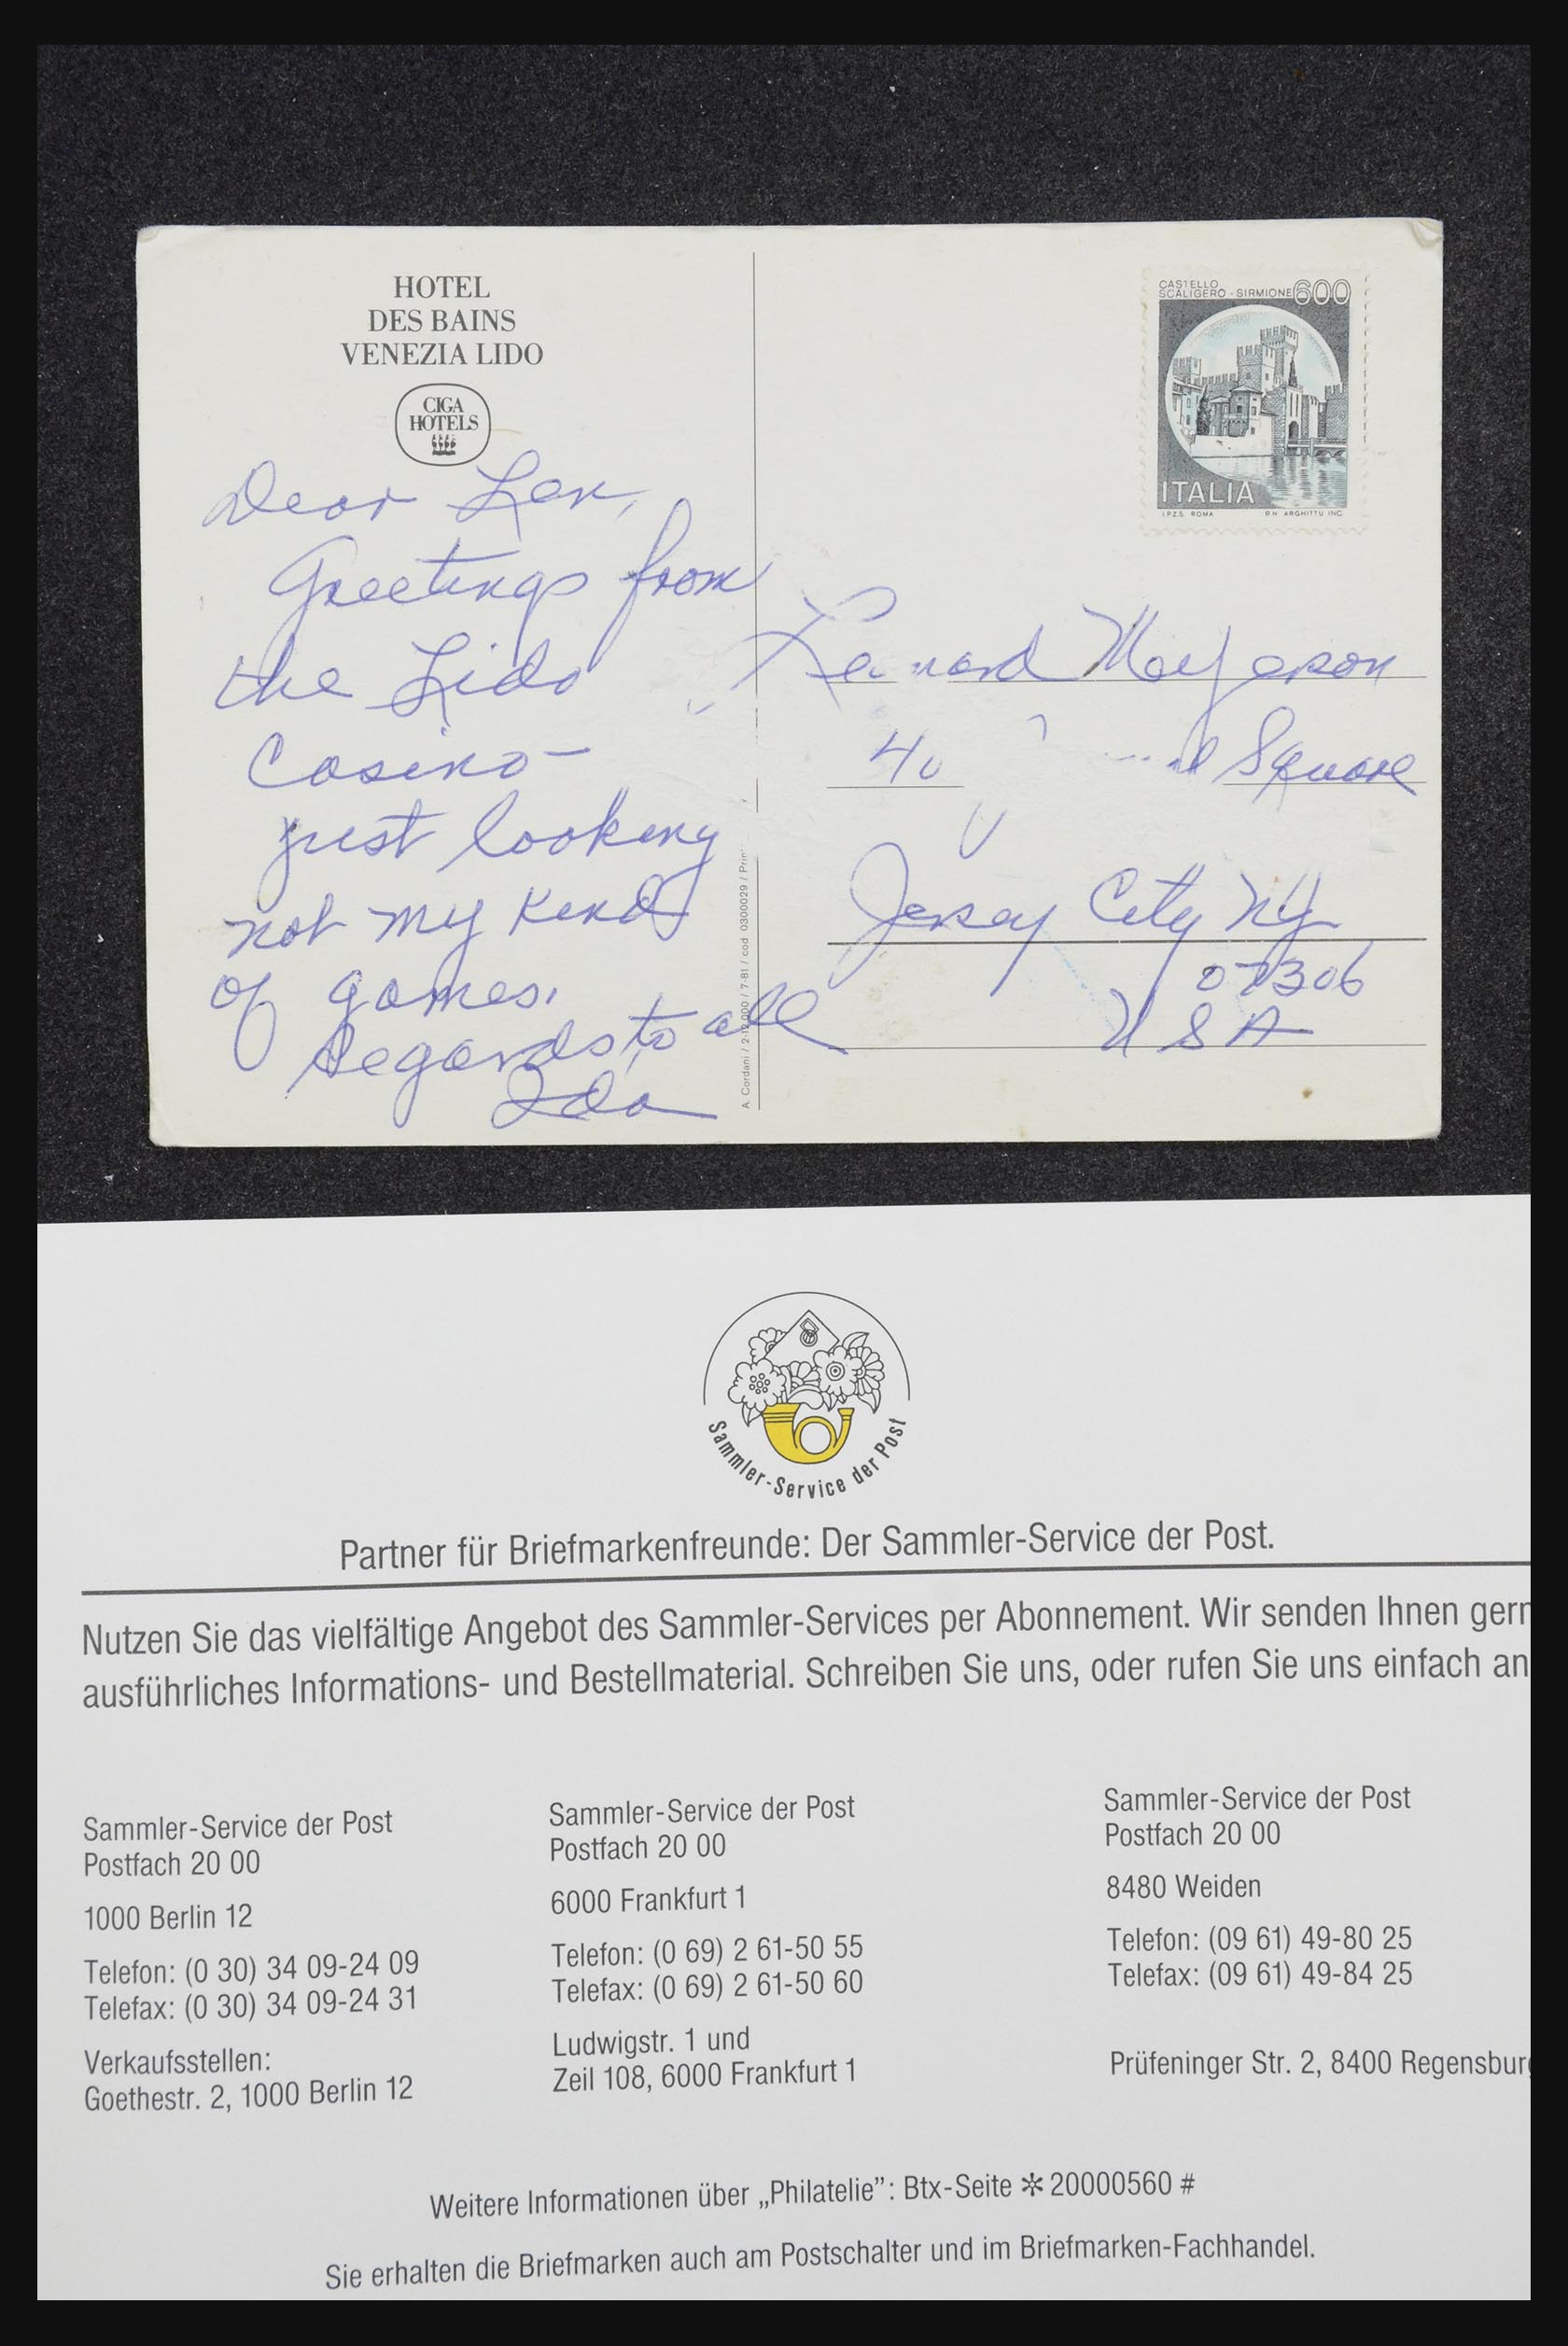 HOTEL
DES BAINS
VENEZIA LIDO
CIGA
HOTELS
Dear Len,
Greetings from
the Lido
Casino—
just looking
not my kind
of games.
Regards to all
Ida
A. Cordani / 2-12.000 / 7-81 / cod 0300029 / Prin
CASTELLO
SCALIGERO - SIRMIONE 600
ITALIA
I.P.Z.S. ROMA P.N. ARGHITTU INC.
Leonard Meyerson
40 Square
Jersey City NJ
07306
USA
Sammler-Service der Post
Partner für Briefmarkenfreunde: Der Sammler-Service der Post.
Nutzen Sie das vielfältige Angebot des Sammler-Services per Abonnement. Wir senden Ihnen gern
ausführliches Informations- und Bestellmaterial. Schreiben Sie uns, oder rufen Sie uns einfach an
Sammler-Service der Post
Postfach 20 00
1000 Berlin 12
Telefon: (0 30) 34 09-24 09
Telefax: (0 30) 34 09-24 31
Verkaufsstellen:
Goethestr. 2, 1000 Berlin 12
Sammler-Service der Post
Postfach 20 00
6000 Frankfurt 1
Telefon: (0 69) 2 61-50 55
Telefax: (0 69) 2 61-50 60
Ludwigstr. 1 und
Zeil 108, 6000 Frankfurt 1
Sammler-Service der Post
Postfach 20 00
8480 Weiden
Telefon: (09 61) 49-80 25
Telefax: (09 61) 49-84 25
Prüfeninger Str. 2, 8400 Regensburg
Weitere Informationen über „Philatelie”: Btx-Seite ✻ 20000560 #
Sie erhalten die Briefmarken auch am Postschalter und im Briefmarken-Fachhandel.